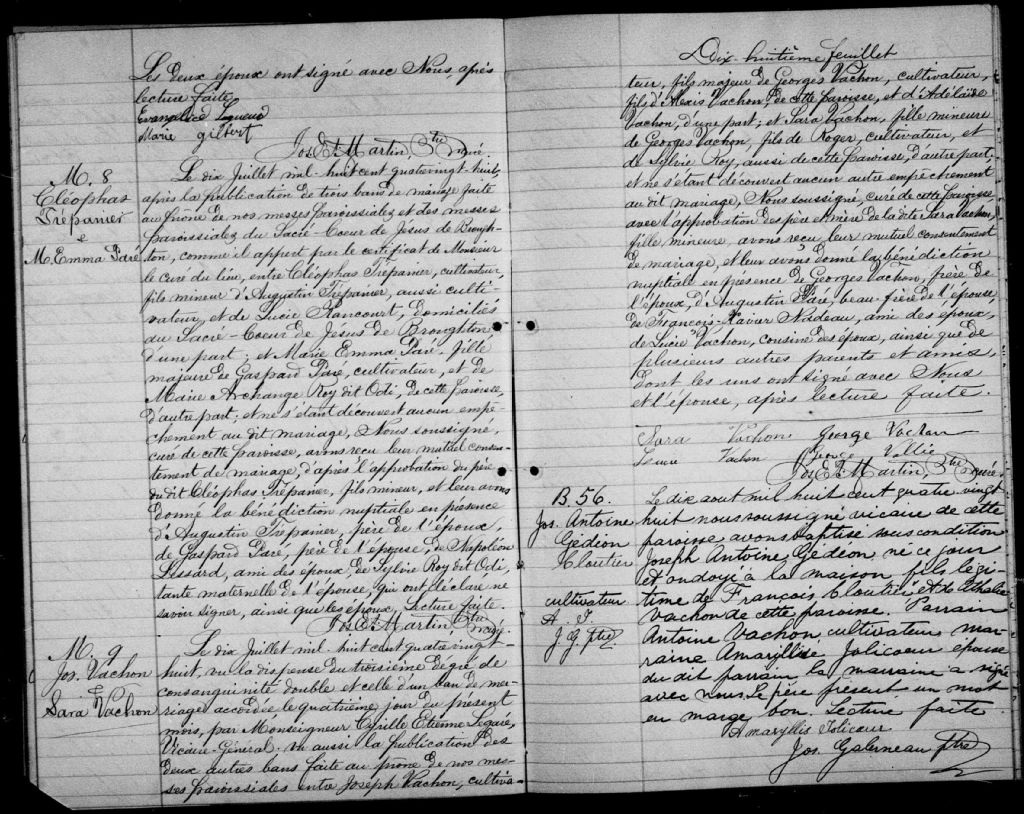 Les deux époux ont signé avec Nous, après
lecture faite.
Marie Gilbert
Jos. E. Martin, Ptre Curé
M. 8
Cléophas
Trépanier
&
M. Emma Paré
Le dix Juillet mil-huit cent quatre vingt-huit,
après la publication de trois bans de mariage faite
au prône de nos messes paroissiales et des messes
paroissiales du Sacré-Coeur de Jésus de Brough-
ton, comme il appert par le certificat de Monsieur
le curé du lieu, entre Cléophas Trépanier, cultivateur,
fils mineur d'Augustin Trépanier, aussi culti-
vateur, et de Lucie Rancourt, domiciliés
du Sacré-Coeur de Jésus de Broughton
d'une part; et Marie Emma Paré, fille
majeure de Gaspard Paré, cultivateur, et de
Marie Archange Roy dit Odi, de cette paroisse,
d'autre part; et ne s'étant découvert aucun empê-
chement au dit mariage, Nous soussigné,
curé de cette paroisse, avons reçu leur mutuel consen-
tement de mariage, d'après l'approbation du père
du dit Cléophas Trépanier, fils mineur, et leur avons
donné la bénédiction nuptiale en présence
d'Augustin Trépanier, père de l'époux,
de Gaspard Paré, père de l'épouse, de Napoléon
Lessard, ami des époux, de Sylvie Roy dit Odi,
tante maternelle de l'épouse, qui ont déclaré ne
savoir signer, ainsi que les époux, lecture faite.
Jos. E. Martin, Ptre Curé.
M. 9
Jos. Vachon
&
Sara Vachon
Le dix Juillet mil-huit cent quatre vingt-
huit, vu la dispense du troisième degré de
consanguinité double et celle d'un ban de ma-
riage accordée le quatrième jour du présent
mois, par Monseigneur Cyrille Etienne Legaré,
Vicaire-Général. Vu aussi la publication des
deux autres bans faite au prône de nos mes-
ses paroissiales entre Joseph Vachon, cultiva-
Dix-huitième feuillet
teur, fils majeur de Georges Vachon, cultivateur,
fils d'Alexis Vachon, de cette paroisse, et d'Adélaïde
Vachon, d'une part; et Sara Vachon, fille mineure
de Georges Vachon, fils de Roger, cultivateur, et
de Sylvie Roy, aussi de cette paroisse, d'autre part;
et ne s'étant découvert aucun autre empêchement
au dit mariage, Nous soussigné, curé de cette paroisse,
avec l'approbation des père et mère de la dite Sara Vachon,
fille mineure, avons reçu leur mutuel consentement
de mariage, et leur avons donné la bénédiction
nuptiale en présence de Georges Vachon, père de
l'époux, d'Augustin Paré, beau-frère de l'épouse,
de François-Xavier Nadeau, ami des époux,
de Luce Vachon, cousine des époux, ainsi que de
plusieurs autres parents et amis
dont les uns ont signé avec Nous
et l'épouse, après lecture faite.
Sara Vachon George Vachon
Vachon George
Jos. E. Martin, Ptre Curé
B 56.
Jos. Antoine
Gédéon
Cloutier
cultivateur
A. J.
J G Ptre
Le dix aout mil huit cent quatre vingt
huit nous soussigné vicaire de cette
paroisse avons baptisé sous condition
Joseph Antoine Gédéon né ce jour
et ondoyé à la maison fils légi-
time de François Cloutier et de Athalie
Vachon de cette paroisse. Parrain
Antoine Vachon cultivateur mar-
raine Amaryllise Jolicoeur épouse
du dit parrain la marraine a signé
avec nous. Le père présent un mot
en marge bon. Lecture faite
Amaryllis Jolicoeur
Jos. Galerneau Ptre